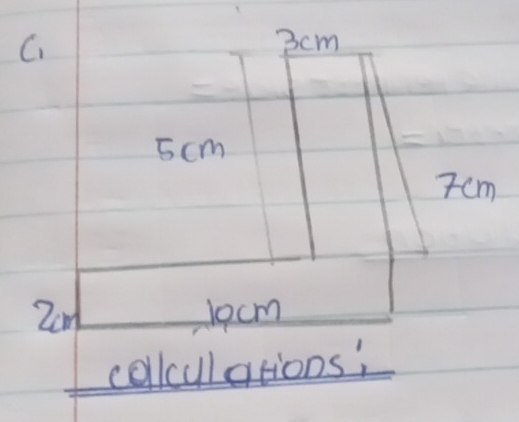 C,
3cm
5cm
7cm
2cm
10cm
callculations;